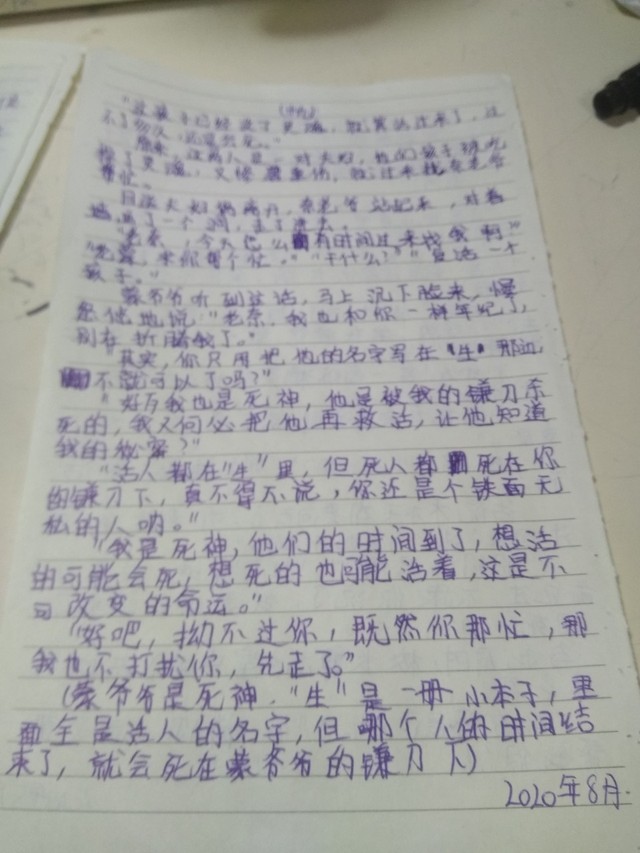 "这孩子已经没了灵魂，救算活过来了，过
不了多久，还是会死。"
原来，这两人是一对夫妇，他们孩子被吃
掉了灵魂，又惨遭重伤，救过来找秦老爷
帮忙。
目送夫妇俩离开，秦老爷站起来，对着
"老秦，今天怎么有时间过来找我啊"
"老蒙，来你帮个忙。""干什么？""复活一个
孩子。"
蒙爷爷听到这话，马上沉下脸来，
地说"老秦，我也和你一样年纪了，
别在折腾我了。"
"其实，你只用把他的名字写在"生"那边，
不就可以了吗？"
"好歹我也是死神，他是被我的镰刀杀
死的，我又何必把他再救活，让他知道
我的秘密？"
"活人都在"生"里，但死人都死在你
的镰刀下，真不得不说，你还是个铁面无
私的人呐。"
"我是死神，他们的时间到了，想活
的可能会死，想死的也可能活着，这是不
可改变的命运。"
"好吧，拗不过你，既然你那忙，那
我也不打扰你，先走了。"
(蒙爷爷是死神，"生"是一册小本子，里
面全是活人的名字，但哪个人的时间结
束了，就会死在蒙爷爷的镰刀下)
2020年8月.